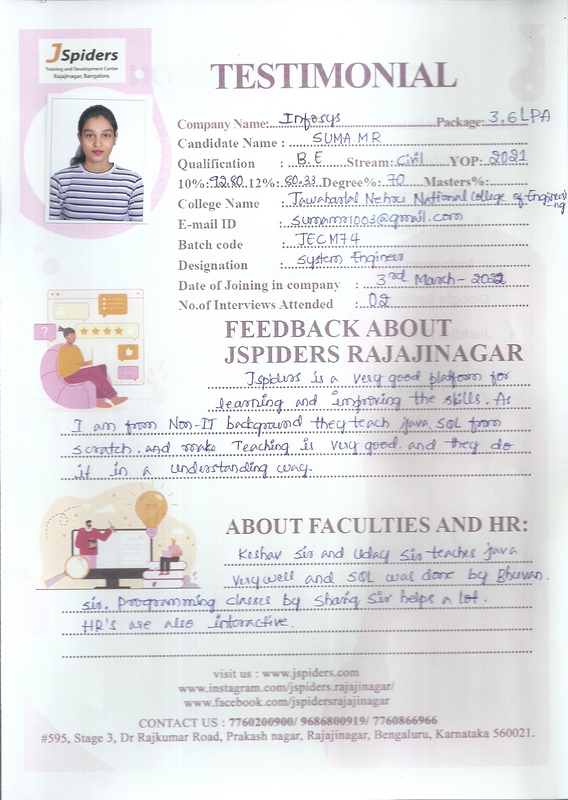 JSpiders
Training and Development Center
Rajajinagar, Bangalore.
TESTIMONIAL
Company Name: Infosys Package: 3.6LPA
Candidate Name : SUMA.M.R
Qualification : B.E Stream: Civil YOP: 2021
10%: 92.80 12%: 80.33 Degree%: 70 Masters%:
College Name : Jawaharlal Nehru National College of Engineering
E-mail ID : sumamr1003@gmail.com
Batch code : JECM74
Designation : System Engineer
Date of Joining in company : 3rd March - 2022
No.of Interviews Attended : 02
FEEDBACK ABOUT
JSPIDERS RAJAJINAGAR
Jspiders is a very good platform for
learning and improving the skills. As
I am from Non-IT background they teach java, SQL from
scratch. and make Teaching is very good. and they do
it in a understanding way.
ABOUT FACULTIES AND HR:
Keshav Sir and Uday Sir teaches java
very well and SQL was done by Bhuvan.
sir. Programming classes by Shariq Sir helps a lot.
HR's are also interactive.
visit us : www.jspiders.com
www.instagram.com/jspiders.rajajinagar/
www.facebook.com/jspidersrajajinagar
CONTACT US : 7760200900/ 9686800919/ 7760866966
#595, Stage 3, Dr Rajkumar Road, Prakash nagar, Rajajinagar, Bengaluru, Karnataka 560021.